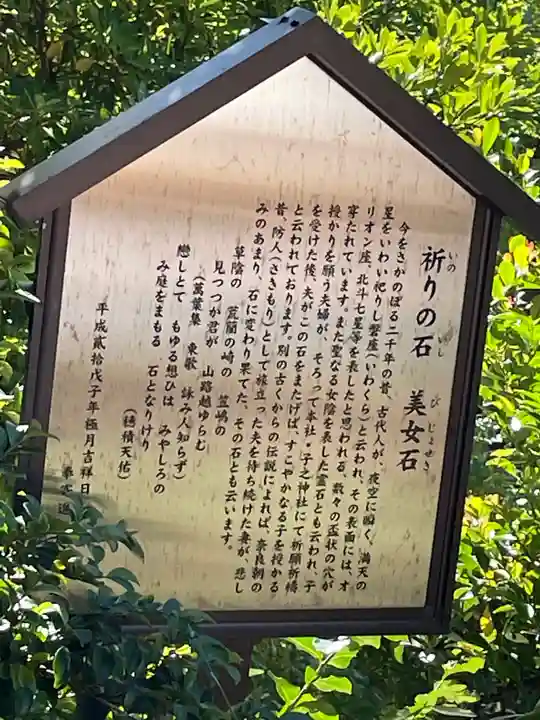 いの いし び じょせき
祈りの石 美女石
今をさかのぼる二千年の昔、古代人が、夜空に瞬く、満天の
星をいわい祀りし磐座(いわくら)と云われ、その表面には、オ
リオン座、北斗七星等を表したと思われる、数々の盃状の穴が
穿たれています。また聖なる女陰を表した霊石とも云われ、子
授かりを願う夫婦が、そろって本社・子之神社にて祈願祈祷
を受けた後、夫がこの石をまたげば、すこやかなる子を授かる
と云われております。別の古くからの伝説によれば、奈良朝の
昔、防人(さきもり)として旅立った夫を待ち続けた妻が、悲し
みのあまり、石に変わり果てた、その石とも云います。
草陰の 荒藺の崎の 笠嶋の
見つつか君が 山路越ゆらむ
(萬葉集 東歌 詠み人知らず)
戀しとて もゆる想ひは みやしろの
み庭をまもる 石となりけり
(穂積天佑)
平成貳拾戊子年極月吉祥日